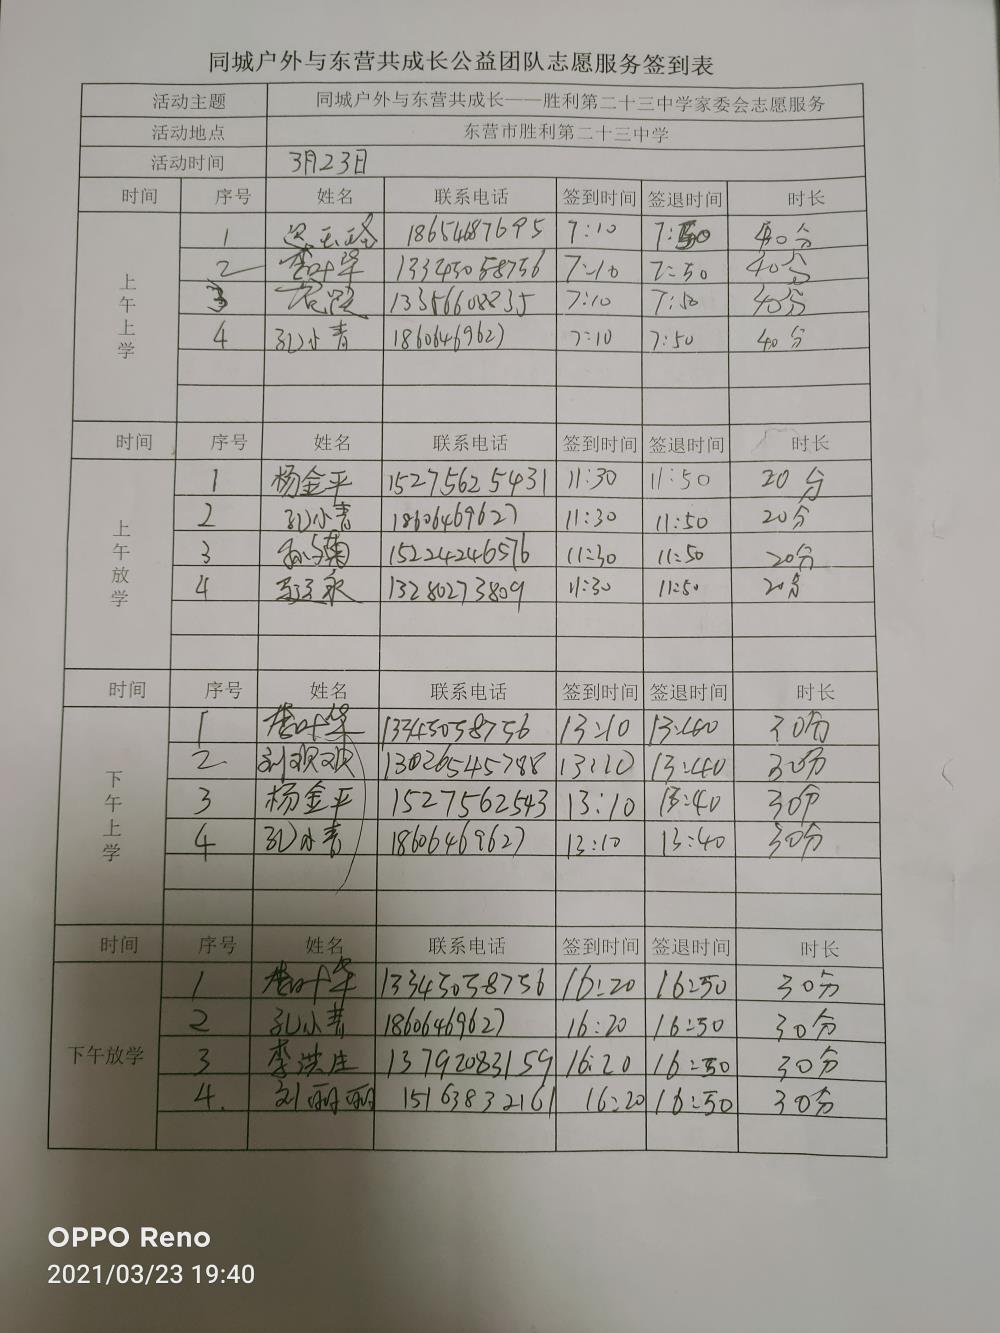 同城户外与东营共成长公益团队志愿服务签到表
活动主题 同城户外与东营共成长——胜利第二十三中学家委会志愿服务
活动地点 东营市胜利第二十三中学
活动时间 3月23日
时间 序号 姓名 联系电话 签到时间 签退时间 时长
上午上学
1 18654687695 7:10 7:50 40分
2 13345058756 7:10 7:50 40分
3 13356608835 7:10 7:50 40分
4 孔小青 18606469627 7:10 7:50 40分
时间 序号 姓名 联系电话 签到时间 签退时间 时长
上午放学
1 杨金平 15275625431 11:30 11:50 20分
2 孔小青 18606469627 11:30 11:50 20分
3 15224246576 11:30 11:50 20分
4 13280273809 11:30 11:50 20分
时间 序号 姓名 联系电话 签到时间 签退时间 时长
下午上学
1 13345058756 13:10 13:40 30分
2 刘欢欢 13026545788 13:10 13:40 30分
3 杨金平 1527562543 13:10 13:40 30分
4 孔小青 18606469627 13:10 13:40 30分
时间 序号 姓名 联系电话 签到时间 签退时间 时长
下午放学
1 13345058756 16:20 16:50 30分
2 孔小青 18606469627 16:20 16:50 30分
3 李洪庄 13792083159 16:20 16:50 30分
4. 刘丽丽 15163832161 16:20 16:50 30分
OPPO Reno
2021/03/23 19:40